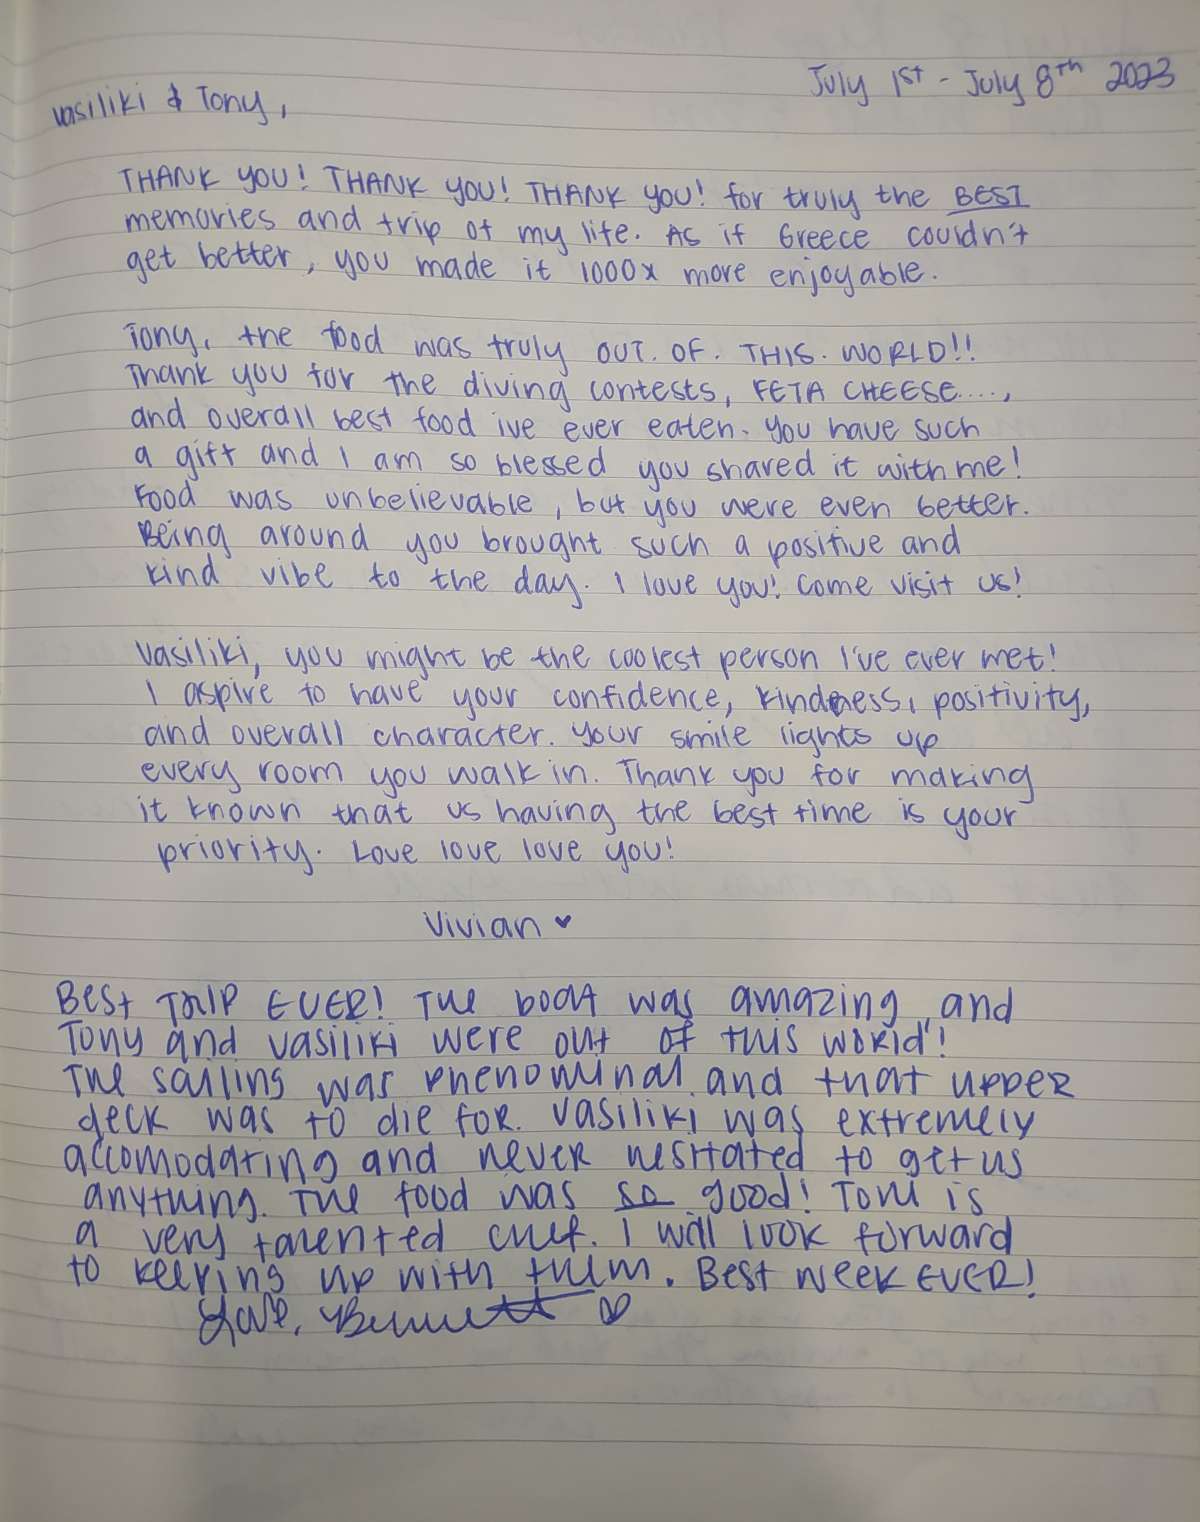 July 1st - July 8th 2023
Vasiliki & Tony,
THANK YOU! THANK YOU! THANK YOU! for truly the BEST
memories and trip of my life. As if Greece couldn't
get better, you made it 1000x more enjoyable.
Tony, the food was truly OUT. OF. THIS. WORLD!!
Thank you for the diving contests, FETA CHEESE....,
and overall best food ive ever eaten. You have such
a gift and I am so blessed you shared it with me!
Food was unbelievable, but you were even better.
Being around you brought such a positive and
kind vibe to the day. I love you! Come visit us!
Vasiliki, you might be the coolest person I've ever met!
I aspire to have your confidence, kindness, positivity,
and overall character. Your smile lights up
every room you walk in. Thank you for making
it known that us having the best time is your
priority. Love love love you!
Vivian ♥
BEST TRIP EVER! The boat was amazing, and
Tony and Vasiliki were out of this world!
The sailing was phenominal and that upper
deck was to die for. Vasiliki was extremely
accomodating and never hesitated to get us
anything. The food was so good! Toni is
a very talented chef. I will look forward
to keeping up with them. Best week EVER!
Love, Bennett ♡